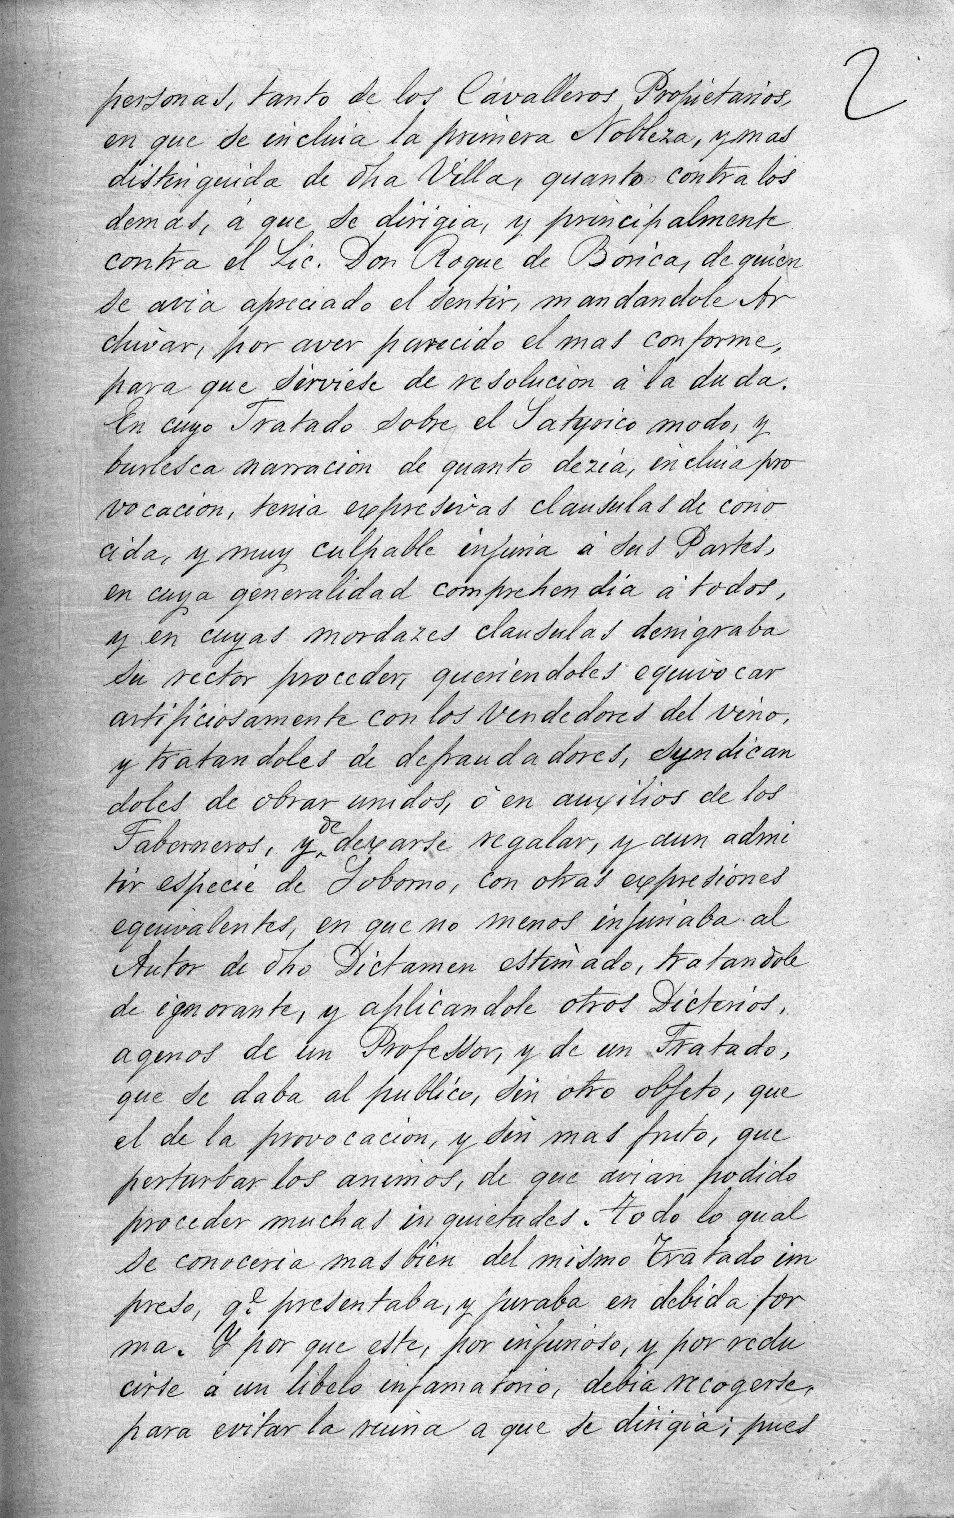 2
personas, tanto de los Cavalleros Propietarios,
en que se incluia la primera Nobleza, y mas
distinguida de dha Villa, quanto contra los
demas, á que se dirigia, y principalmente
contra el Lic. Don Roque de Borica, de quien
se avia apreciado el sentir, mandandole Ar
chivar, por aver parecido el mas conforme,
para que sirviese de resolucion á la duda.
En cuyo Tratado sobre el Satyrico modo, y
burlesca narracion de quanto dezia, incluia pro
vocacion, tenia expresivas clausulas de cono
cida, y muy culpable injuria á sus Partes,
en cuya generalidad comprehendia á todos,
y en cuyas mordazes clausulas denigraba
su rector proceder, queriendoles equivocar
artificiosamente con los Vendedores del vino,
y tratandoles de defraudadores, syndican
doles de obrar unidos, ó en auxilios de los
Taberneros, y de dexarse regalar, y aun admi
tir especie de Soborno, con otras expresiones
equivalentes, en que no menos injuriaba al
Autor de dho Dictamen estimado, tratandole
de ignorante, y aplicandole otros Dicterios,
agenos de un Professor, y de un Tratado,
que se daba al publico, sin otro objeto, que
el de la provocacion, y sin mas fruto, que
perturbar los animos, de que avian podido
proceder muchas inquietudes. Todo lo qual
se conoceria mas bien del mismo Tratado im
preso, qe. presentaba, y juraba en debida for
ma. Y por que este, por injurioso, y por redu
cirse á un libelo infamatorio, debia recogerse,
para evitar la ruina a que se dirigia; pues